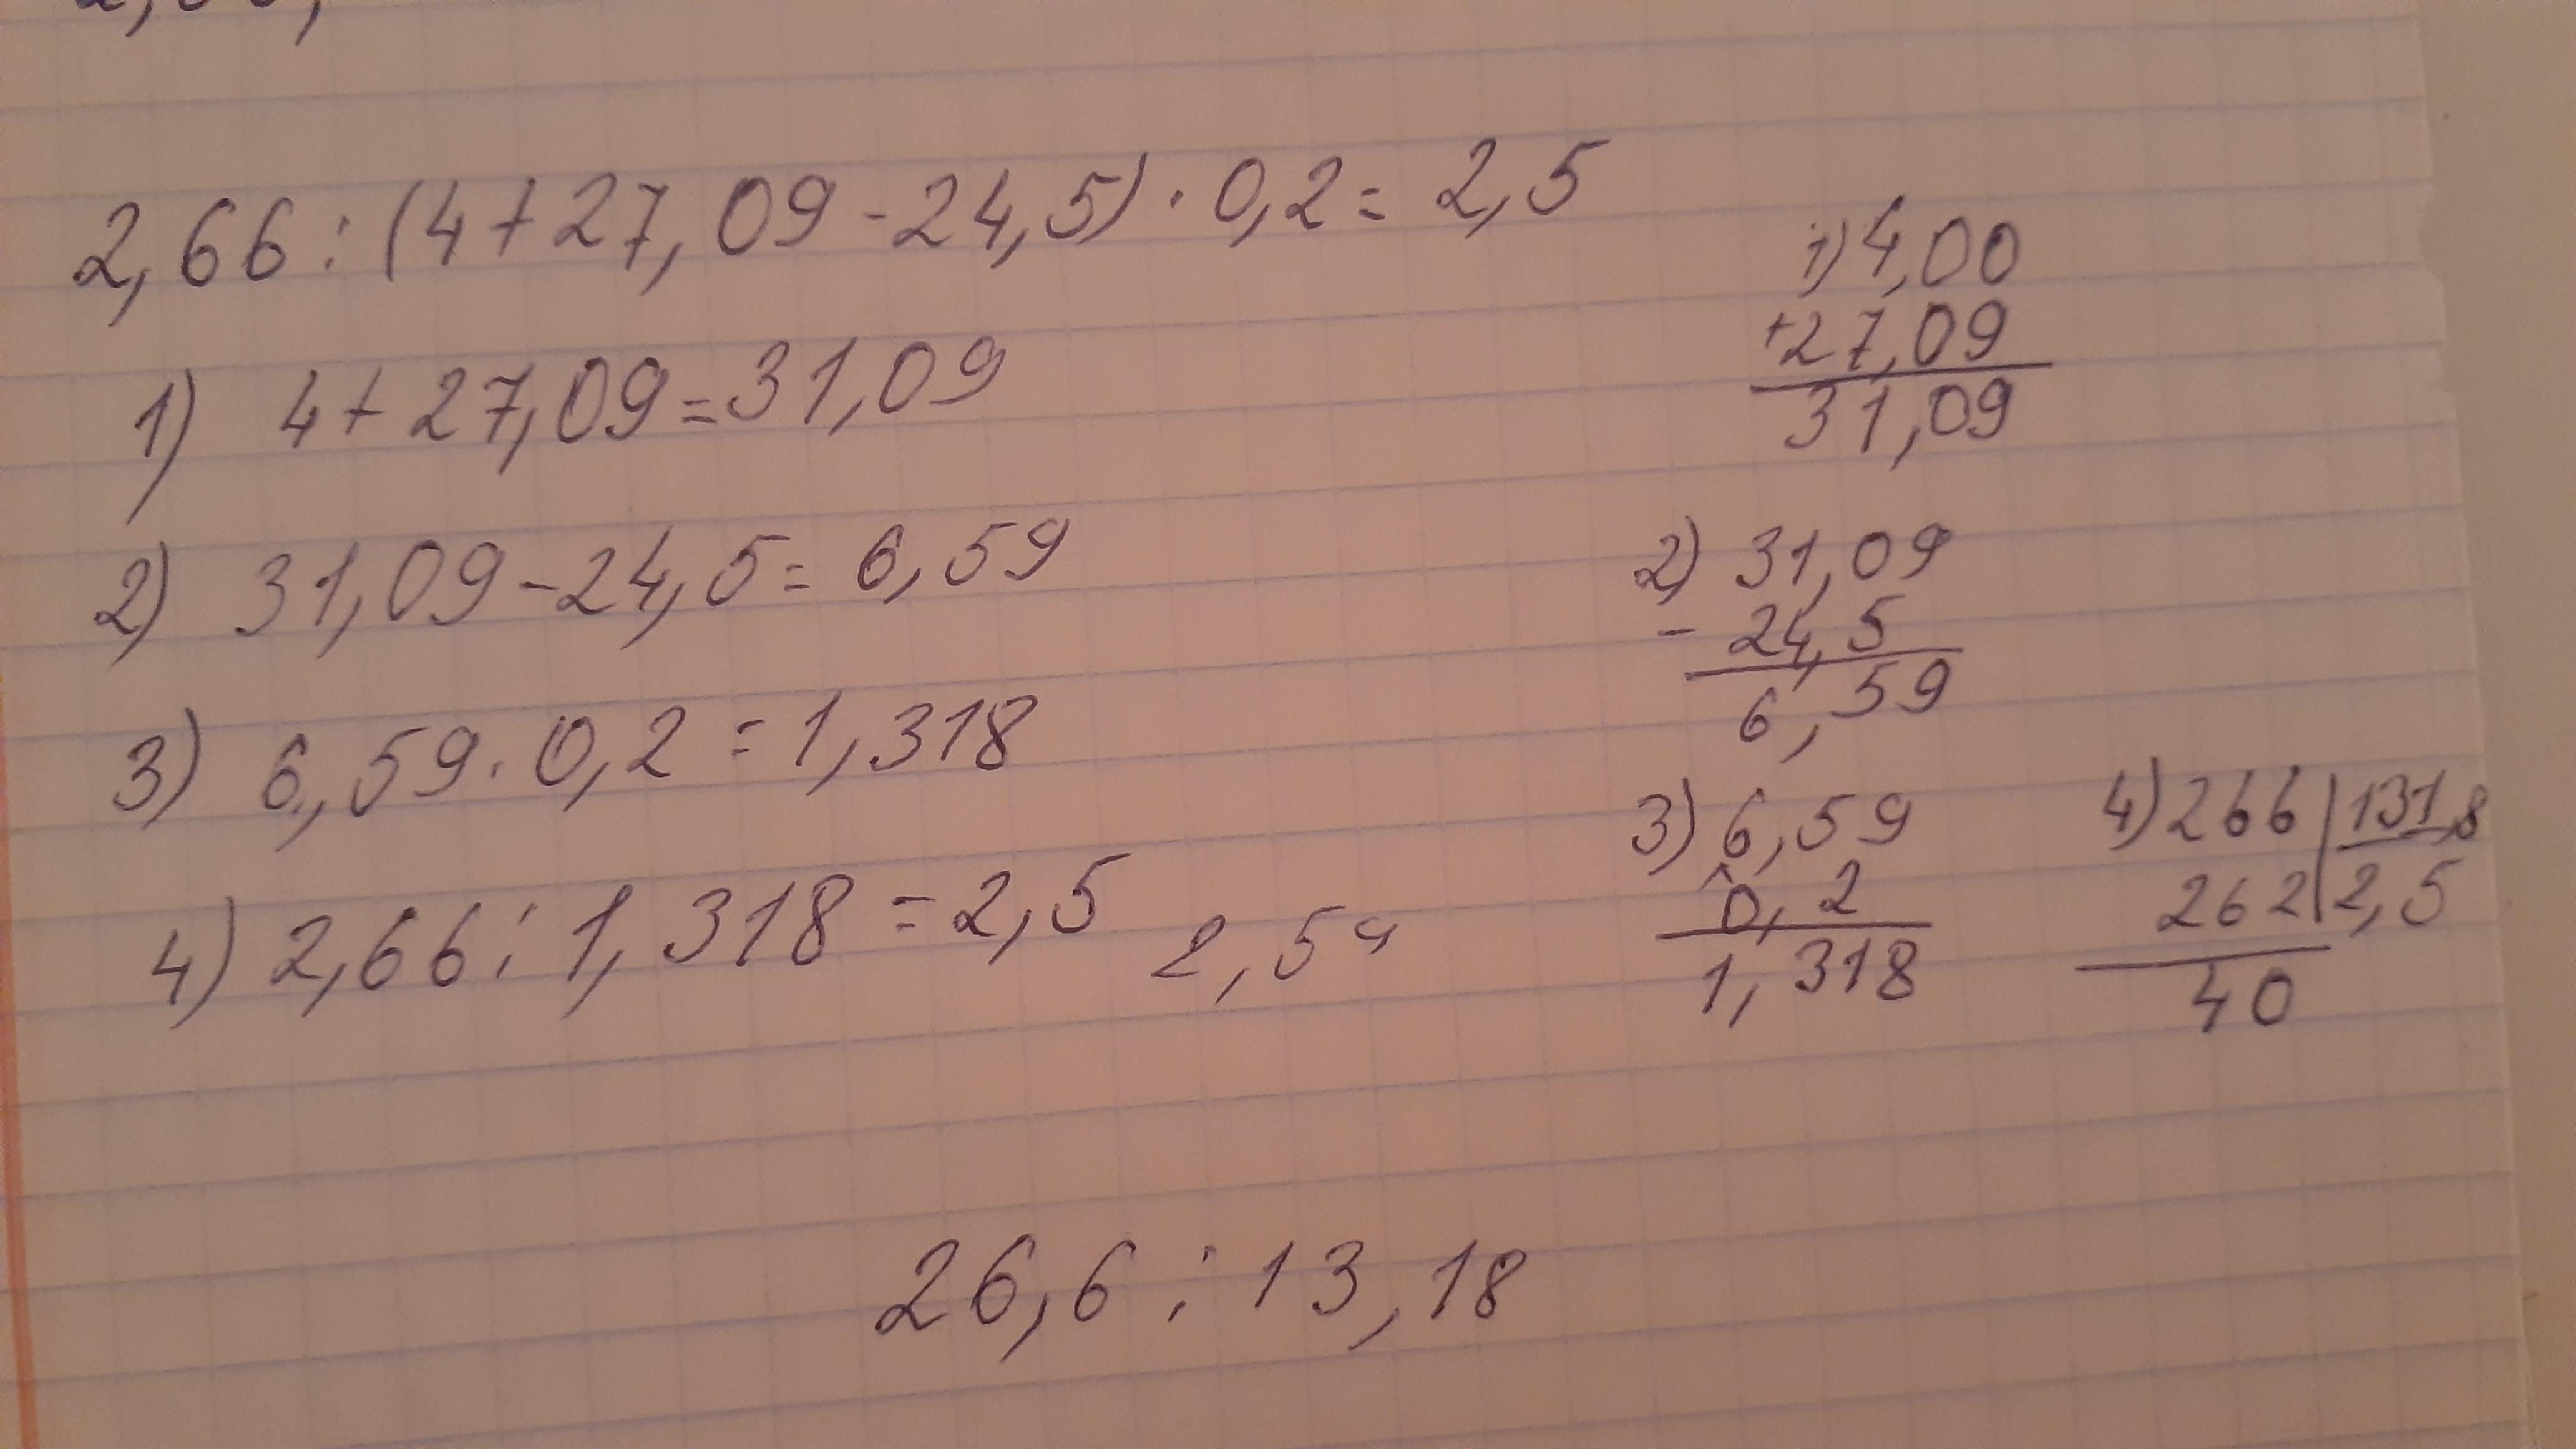 2,66 : (4 + 27,09 - 24,5) · 0,2 = 2,5
1) 4 + 27,09 = 31,09
2) 31,09 - 24,5 = 6,59
3) 6,59 · 0,2 = 1,318
4) 2,66 : 1,318 = 2,5 2,5
1) 4,00
+27,09
31,09
2) 31,09
- 24,5
6,59
3) 6,59
× 0,2
1,318
4) 266 | 131,8
262 | 2,5
40
26,6 : 13,18